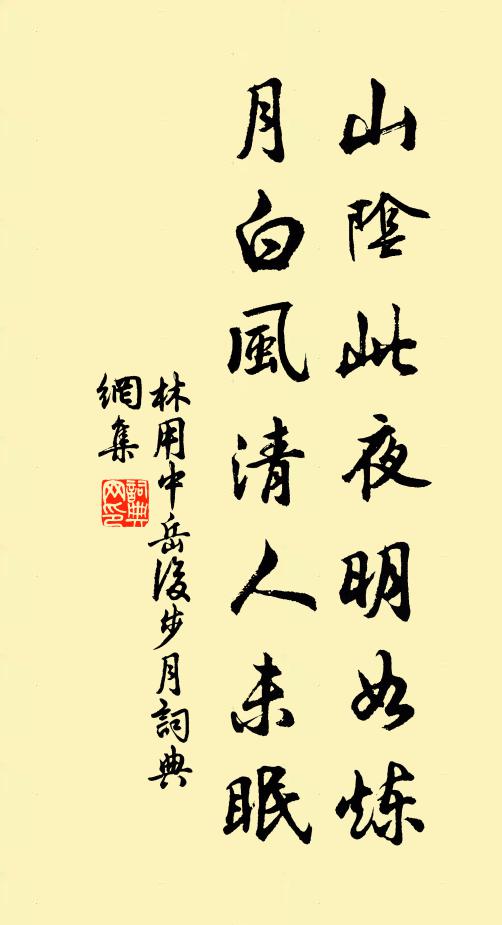 山陰此夜明如炼
月白風清人未眠
林用中岳後步月詞典
網集
詞典
网印